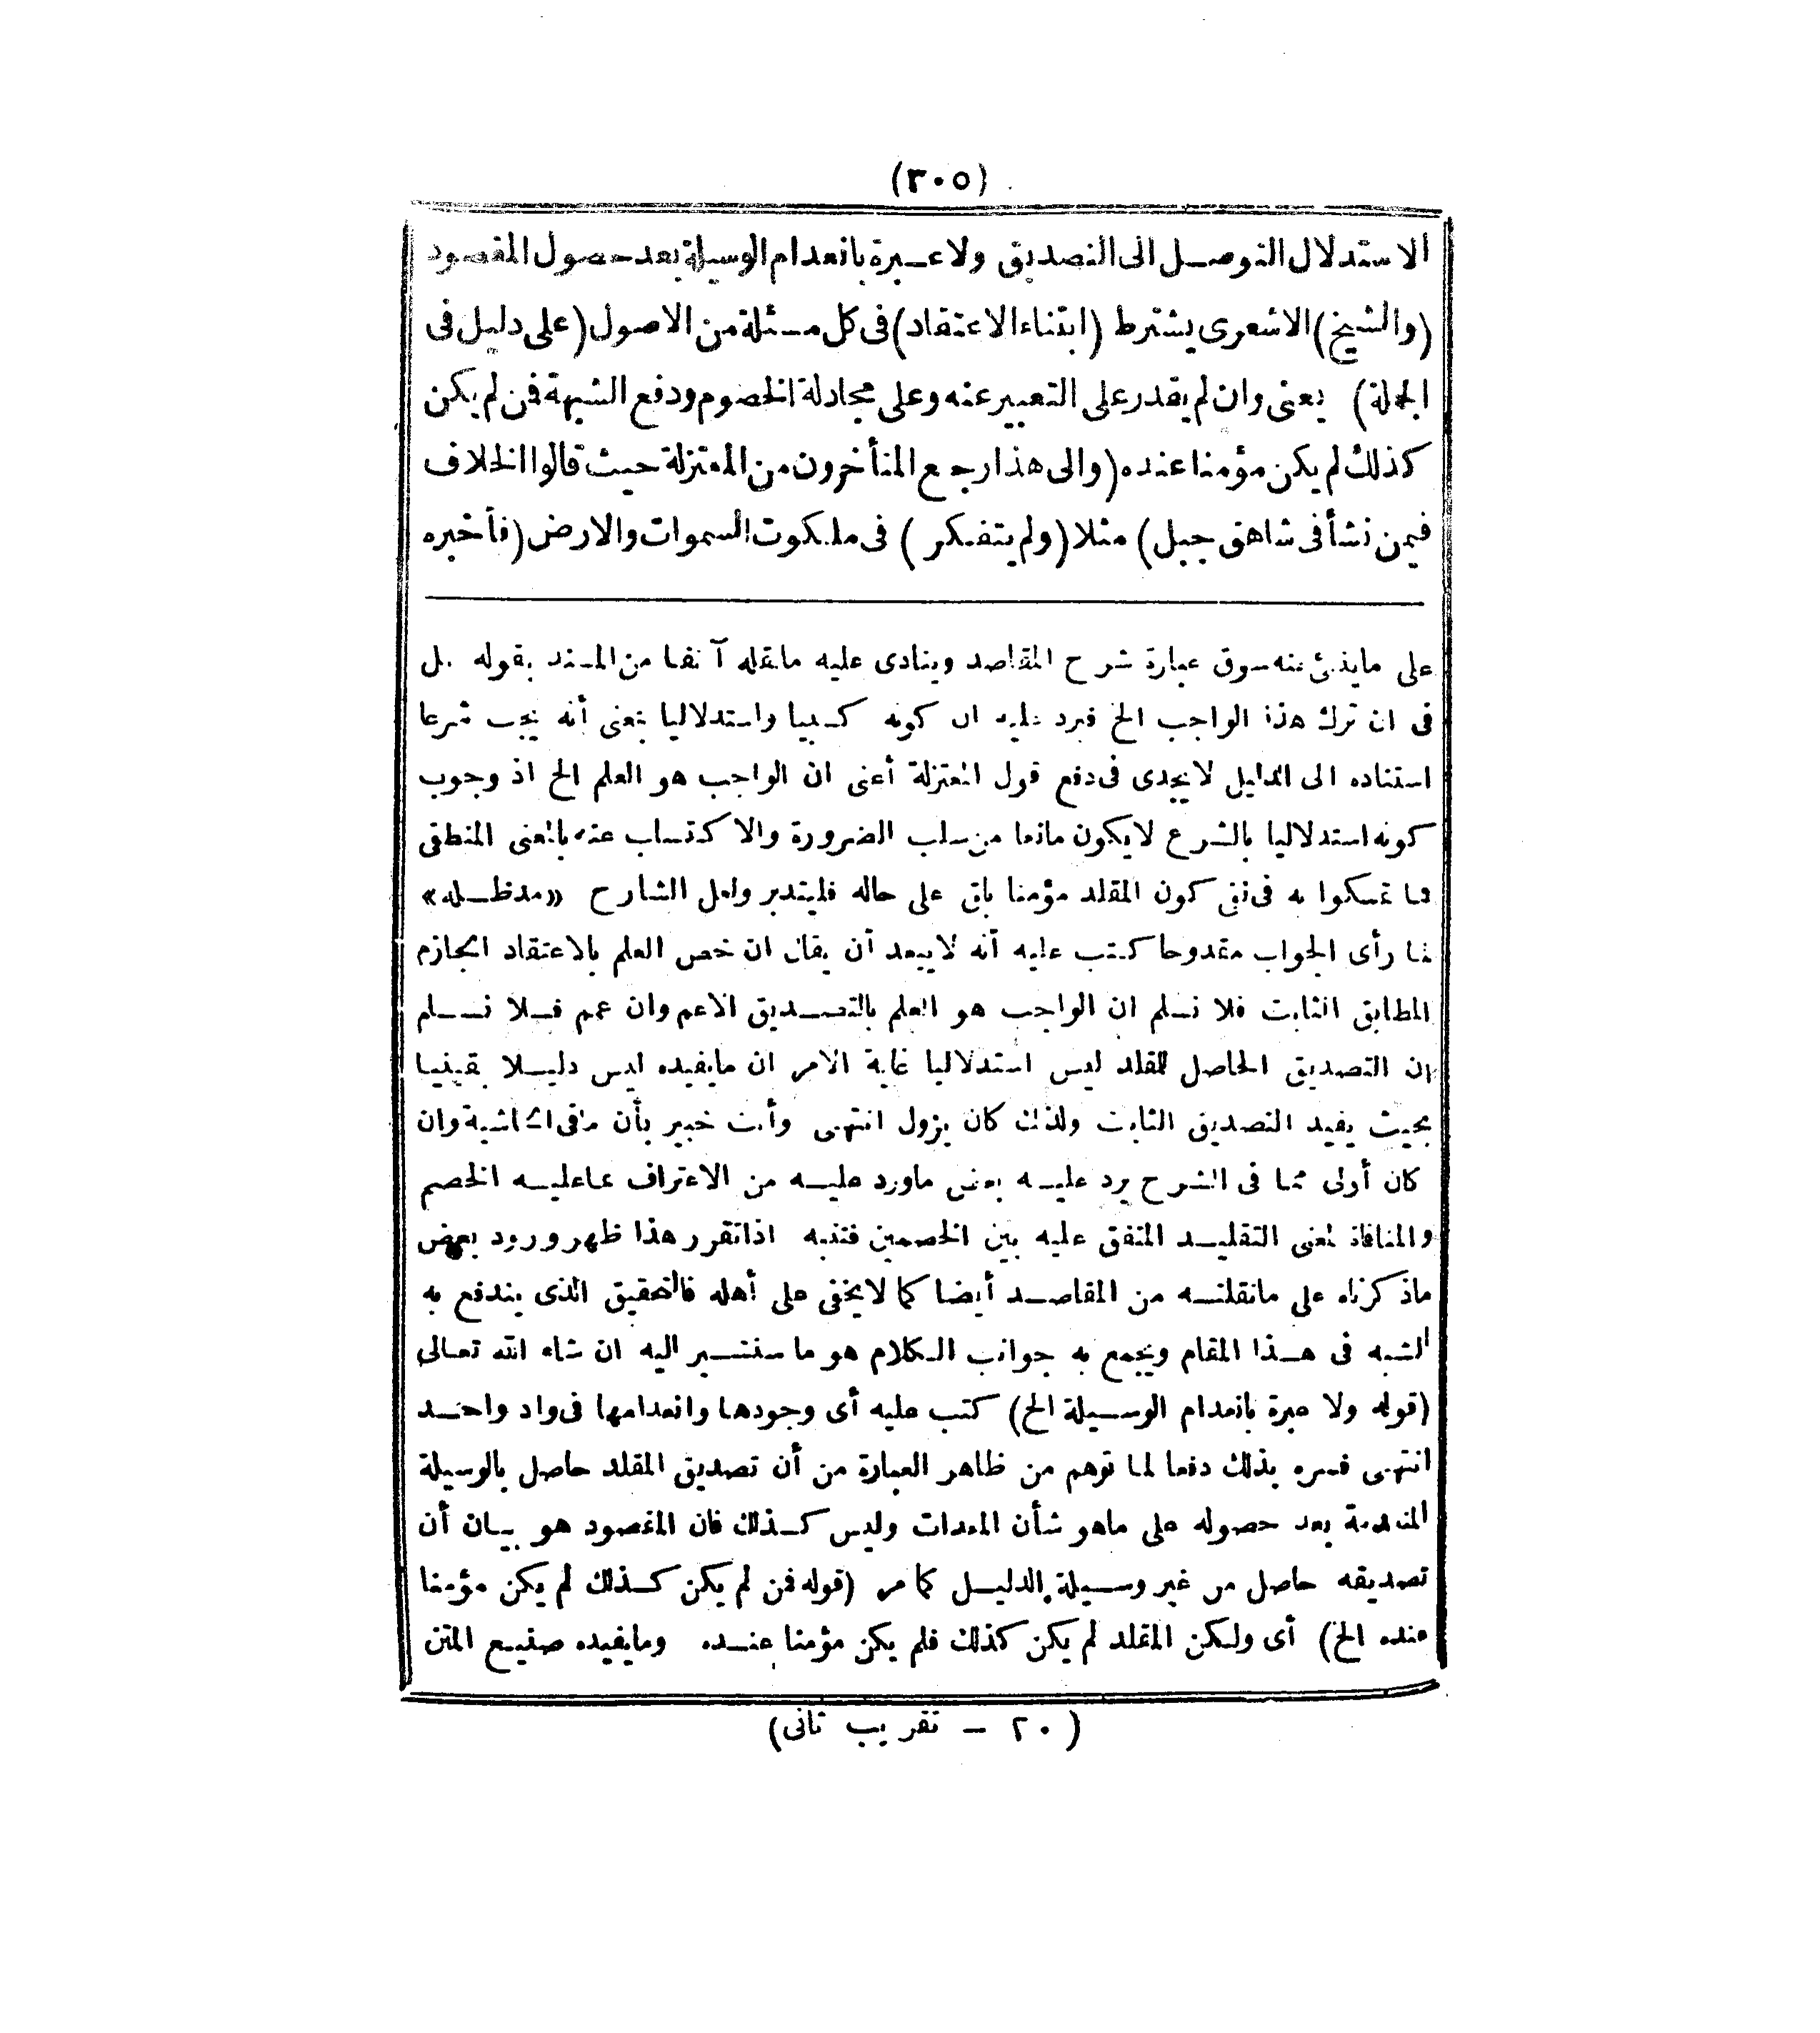 (٣٠٥)
الاستدلال التوصل الى التصديق ولا عبرة بانعدام الوسيلة بعد حصول المقصود
(والشيخ) الاشعرى يشترط (ابتناء الاعتقاد) فى كل مسئلة من الاصول (على دليل فى
الجملة) يعنى وان لم يقدر على التعبير عنه وعلى مجادلة الخصوم ودفع الشبهة فمن لم يكن
كذلك لم يكن مؤمنا عنده (والى هذا رجع المتأخرون من المعتزلة حيث قالوا الخلاف
فيمن نشأ فى شاهق جبل) مثلا (ولم يتفكر) فى ملكوت السموات والارض (فأخبره
على ماينبئ عنه سوق عبارة شرح المقاصد وينادى عليه مانقله آنفا من السند بقوله بل
فى ان ترك هذا الواجب الخ فيرد عليه ان كونه كسبيا واستدلاليا بمعنى أنه يجب شرعا
استناده الى الدليل لايجدى فى دفع قول المعتزلة أعنى ان الواجب هو العلم الخ اذ وجوب
كونه استدلاليا بالشرع لايكون مانعا من سلب الضرورة والاكتساب عنه بالمعنى المنطقى
فما تمسكوا به فى نفى كون المقلد مؤمنا باق على حاله فليتدبر ولعل الشارح «مدظله»
لما رأى الجواب مقدوحا كتب عليه أنه لايبعد أن يقال ان خص العلم بالاعتقاد الجازم
المطابق الثابت فلا نسلم ان الواجب هو العلم بالتصديق الاعم وان عمم فلا نسلم
ان التصديق الحاصل للمقلد ليس استدلاليا غاية الامر ان مايفيده ليس دليلا يقينيا
بحيث يفيد التصديق الثابت ولذلك كان يزول انتهى وأنت خبير بأن مافى الحاشية وان
كان أولى مما فى الشرح يرد عليه بعض ماورد عليه من الاعتراف بما عليه الخصم
والمنافاة لمعنى التقليد المتفق عليه بين الخصمين فتنبه اذا تقرر هذا ظهر ورود بعض
ماذكرناه على مانقلته من المقاصد أيضا كما لايخفى على أهله فالتحقيق الذى يندفع به
الشبه فى هذا المقام ويجمع به جوانب الكلام هو ما سنشير اليه ان شاء الله تعالى
(قوله ولا عبرة بانعدام الوسيلة الخ) كتب عليه أى وجودها وانعدامها فى واد واحد
انتهى فسره بذلك دفعا لما توهم من ظاهر العبارة من أن تصديق المقلد حاصل بالوسيلة
المنعدمة بعد حصوله على ماهو شأن المعدات وليس كذلك فان المقصود هو بيان أن
تصديقه حاصل من غير وسيلة الدليل كما مر (قوله فمن لم يكن كذلك لم يكن مؤمنا
عنده الخ) أى ولكن المقلد لم يكن كذلك فلم يكن مؤمنا عنده ومايفيده صنيع المتن
(٢٠ – تقريب ثانى)